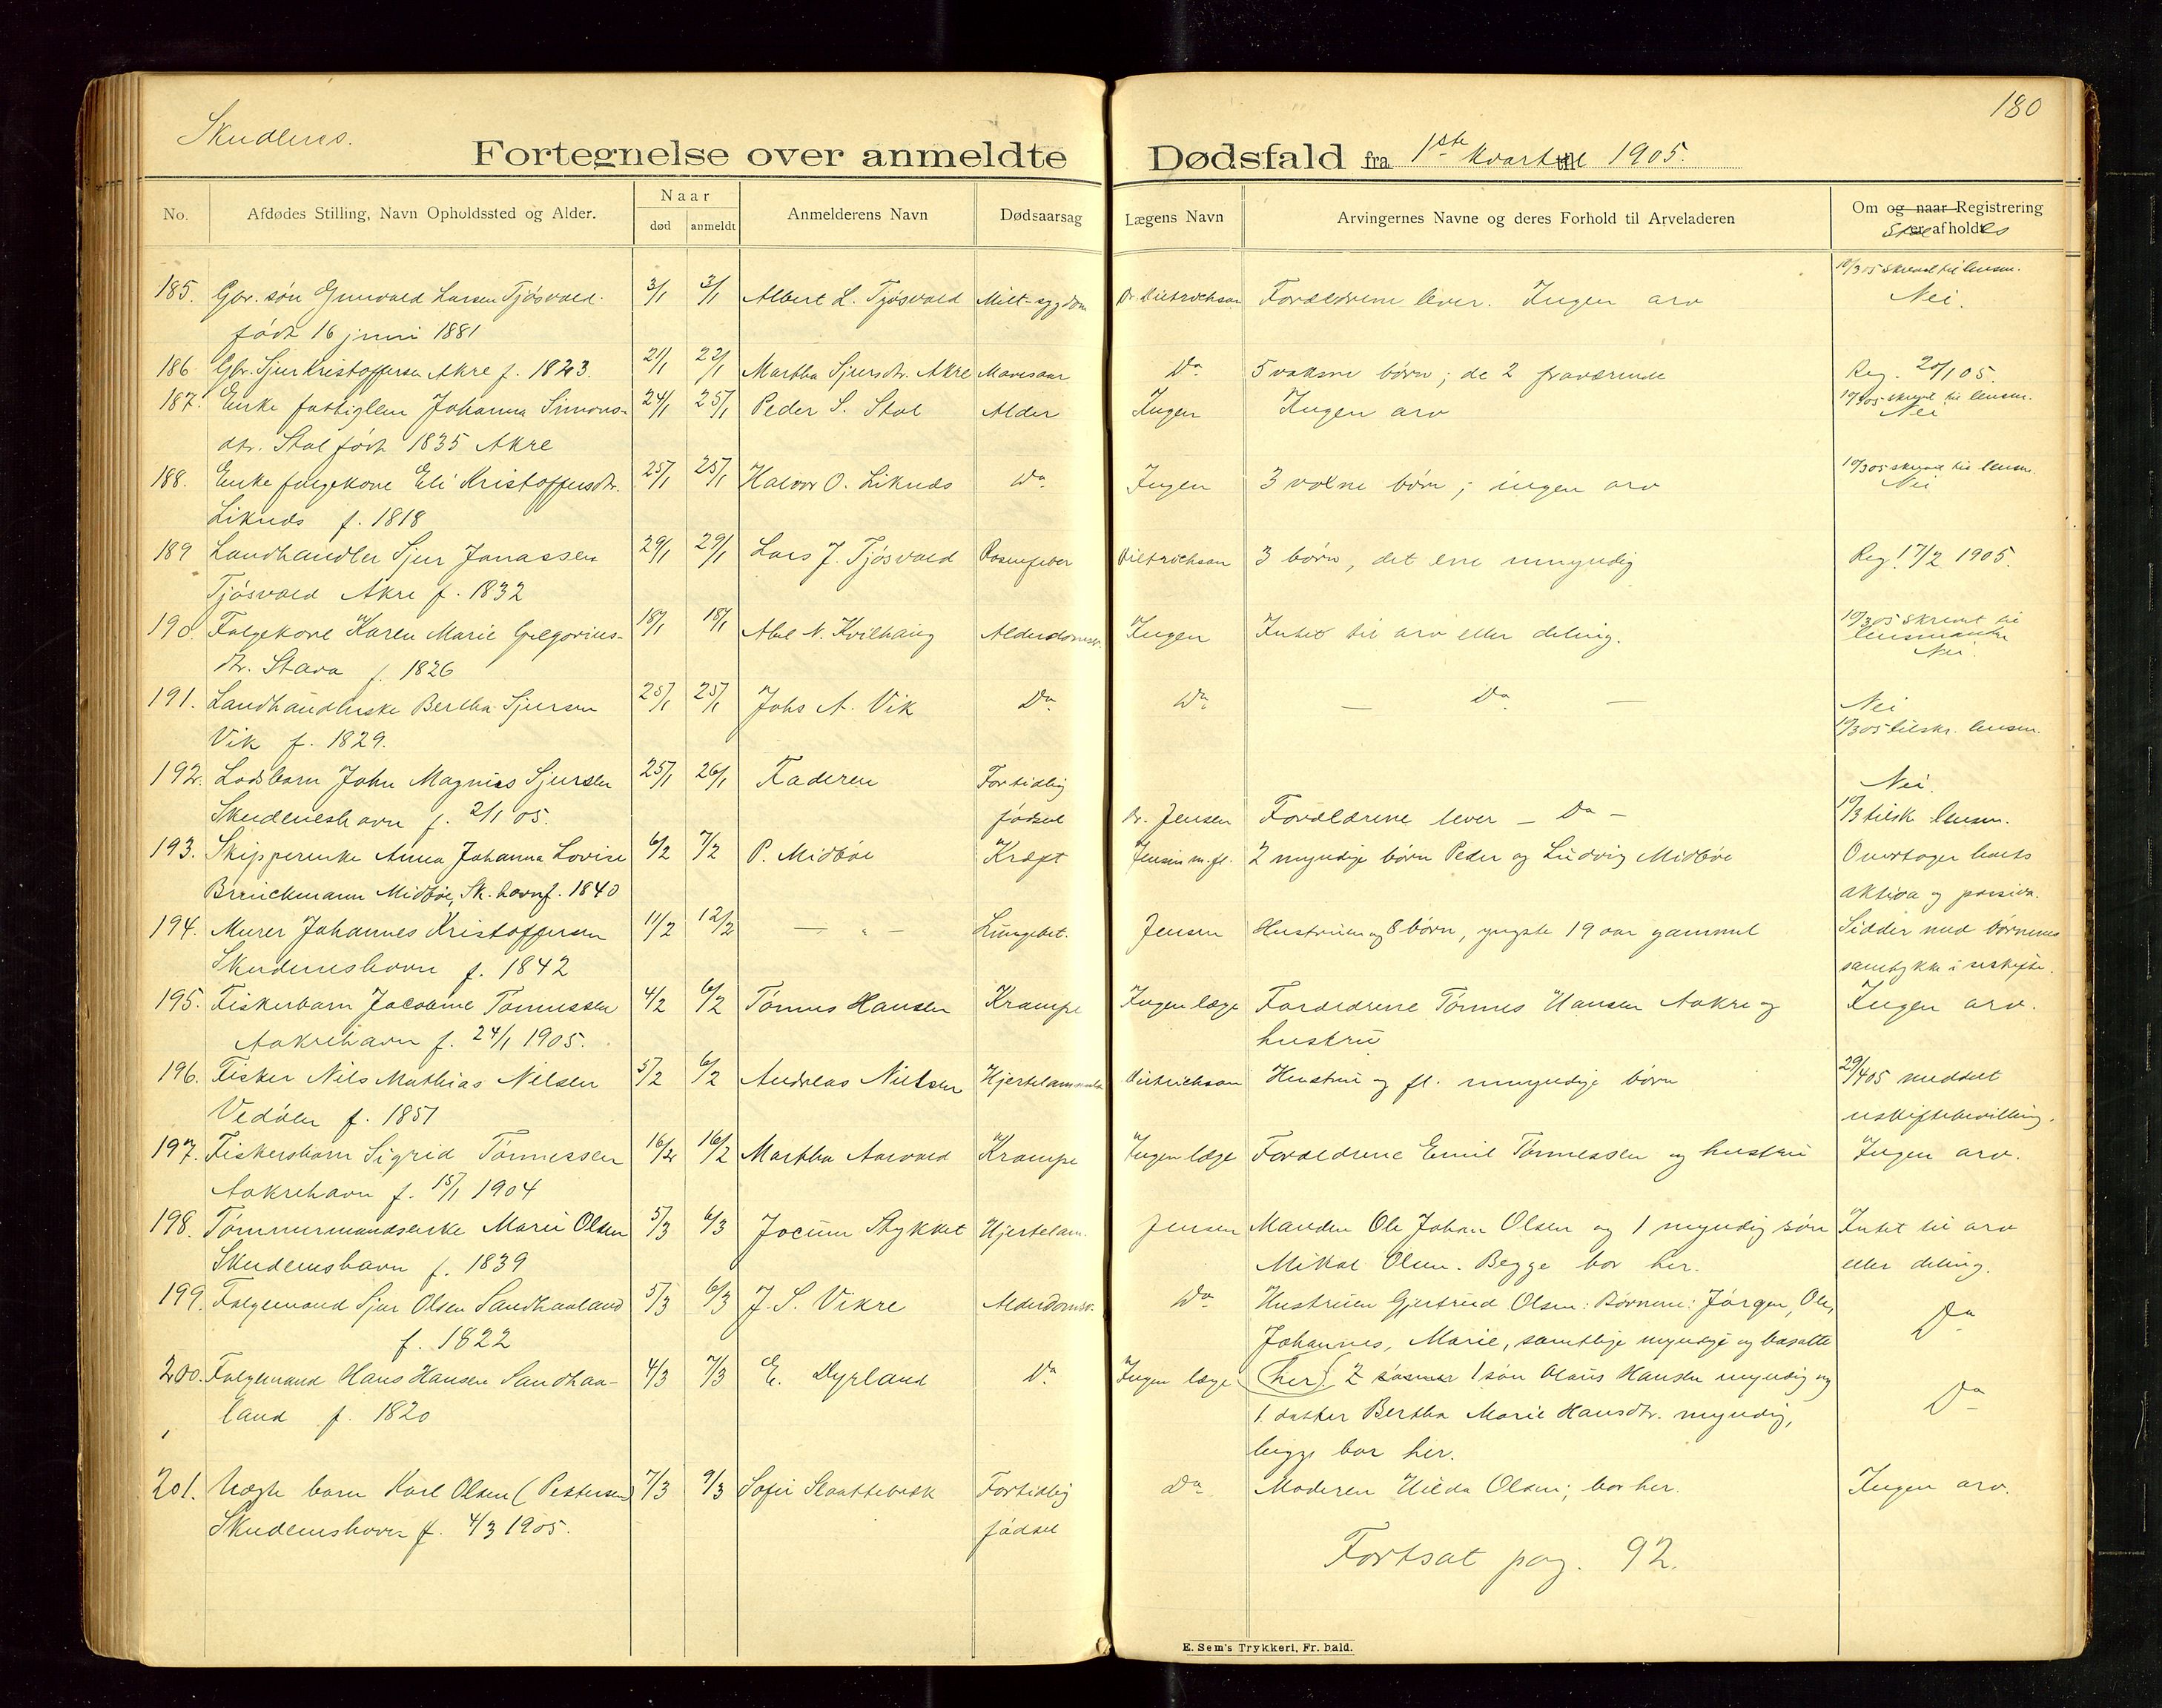 180
Skudenes.
Fortegnelse over anmeldte Dødsfald fra 1ste kvartal 1905.
No. Afdødes Stilling, Navn Opholdssted og Alder. Naar død anmeldt Anmelderens Navn Dødsaarsag Lægens Navn Arvingernes Navne og deres Forhold til Arveladeren Om og naar Registrering er afholdt
185. Gbr. søn Gunvald Larsen Tjøsvold. 3/1 3/1 Albert L. Tjøsvold Milt-sygdom Dr. Dietrichson Forældrene lever. Ingen arv 10/3 05 skrevet til lensm. Nei.
født 16 juni 1881
186. Gbr. Sjur Kristoffersen Akre f. 1823. 21/1 22/1 Martha Sjursdtr. Akre Mavesaar Do 5 voksne børn; de 2 fraværende Reg. 28/1 05.
187. Enke fattiglem Johanna Simons- 24/1 25/1 Peder S. Stol Alder Ingen Ingen arv 10/3 05 skrevet til lensm. Nei
dtr. Stol født 1835 Akre
188. Enke folgekone Eli Kristoffersdtr. 25/1 25/1 Halvor O. Liknes Do Ingen 3 voksne børn; ingen arv 10/3 05 skrevet til lensm. Nei
Liknes f. 1818
189 Landhandler Sjur Jonassen 29/1 29/1 Lars J. Tjøsvold Rosenfeber Dietrichson 3 børn, det ene umyndig Reg. 17/2 1905.
Tjøsvold Akre f. 1832
190. Folgekone Karen Marie Gregorius- 18/1 18/1 Abel N. Kvilhaug Alderdomssv. Ingen Intet til arv eller deling. 10/3 05 skrevet til lensmanden Nei.
dtr. Stava f. 1826
191. Landhandlerske Bertha Sjursen 25/1 25/1 Johs A. Vik Do Do — Do — Nei
Vik f. 1829. 10/3 05 tilskr. lensm.
192. Losbarn John Magnus Sjursen 25/1 26/1 Faderen Fortidlig Nei.
Skudeneshavn f. 2/1 05. fødsel Dr. Jensen Forældrene lever — Do — 10/3 tilsk. lensm.
193. Skipperenke Anna Johanna Lovise 6/2 7/2 P. Midbøe Kræft Jensen m. fl. 2 myndige børn Peder og Ludvig Midbøe Overtager boets
Brruckmann Midbøe, Sk. havn f. 1840 aktiva og passiva.
194. Murer Johannes Kristoffersen 11/2 12/2 — „ — Lungebet. Jensen Hustruen og 8 børn, yngste 19 aar gammel Sidder med børnenes
Skudeneshavn f. 1842 samtykke i uskifte.
195. Fiskerbarn Jacobine Tønnessen 4/2 6/2 Tønnes Hansen Krampe Ingen læge Forældrene Tønnes Hansen Aakre og Ingen arv.
Aakrehavn f. 24/1 1905. hustru
196. Fisker Nils Mathias Nilsen 5/2 6/2 Andreas Nielsen Hjertelammelse Dietrichson Hustru og fl. umyndige børn 29/4 05 meddelt
Vedøen f. 1851 uskiftebevilling.
197. Fiskersbarn Sigrid Tønnessen 16/2 16/2 Martha Aasvold Krampe Ingen læge Forældrene Emil Tønnessen og hustru Ingen arv.
Aakrehavn f. 15/1 1904
198. Tømmermandsenke Marie Olsen 5/3 6/3 Jocum Stykket Hjertelam. Jensen Manden Ole Johan Olsen og 1 myndig søn Intet til arv
Skudeneshavn f. 1839 Mikal Olsen. Begge bor her. eller deling.
199. Folgemand Sjur Olsen Sandhaaland 5/3 6/3 J. S. Vikre Alderdomssv. Do Hustruen Gjertrud Olsen: Børnene: Jørgen, Ole, Do
f. 1822 Johannes, Marie, samtlige myndige og bosatte
200. Folgemand Hans Hansen Sandhaa- 4/3 7/3 E. Dyrland Do Ingen læge (her). 2 søsner 1 søn Olaus Hansen myndig og Do
land f. 1820 1 datter Bertha Marie Hansdtr. myndig,
begge bor her.
201. Uægte barn Karl Olsen (Pettersen) 7/3 9/3 Sofie Slaattebrek Fortidlig Do Moderen Hilda Olsen; bor her. Ingen arv.
Skudeneshavn f. 4/3 1905. fødsel
Fortsat pag. 92.
E. Sem's Trykkeri, Fr.hald.